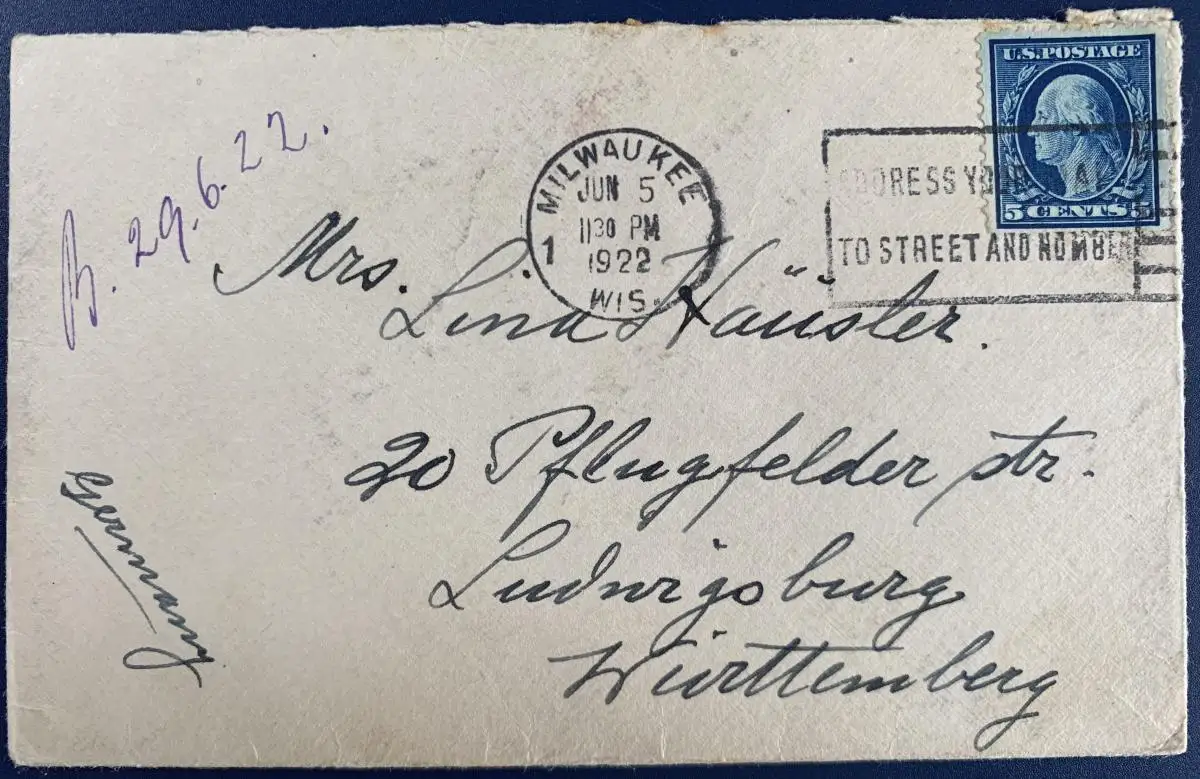 U.S. POSTAGE
5 CENTS 5
MILWAUKEE
JUN 5
1130 PM
1
1922
WIS.
ADDRESS YOUR MAIL
TO STREET AND NUMBER
B. 29.6.22.
Mrs.
Lina Häusler.
20 Pflugfelder str.
Ludwigsburg
Württemberg
Germany